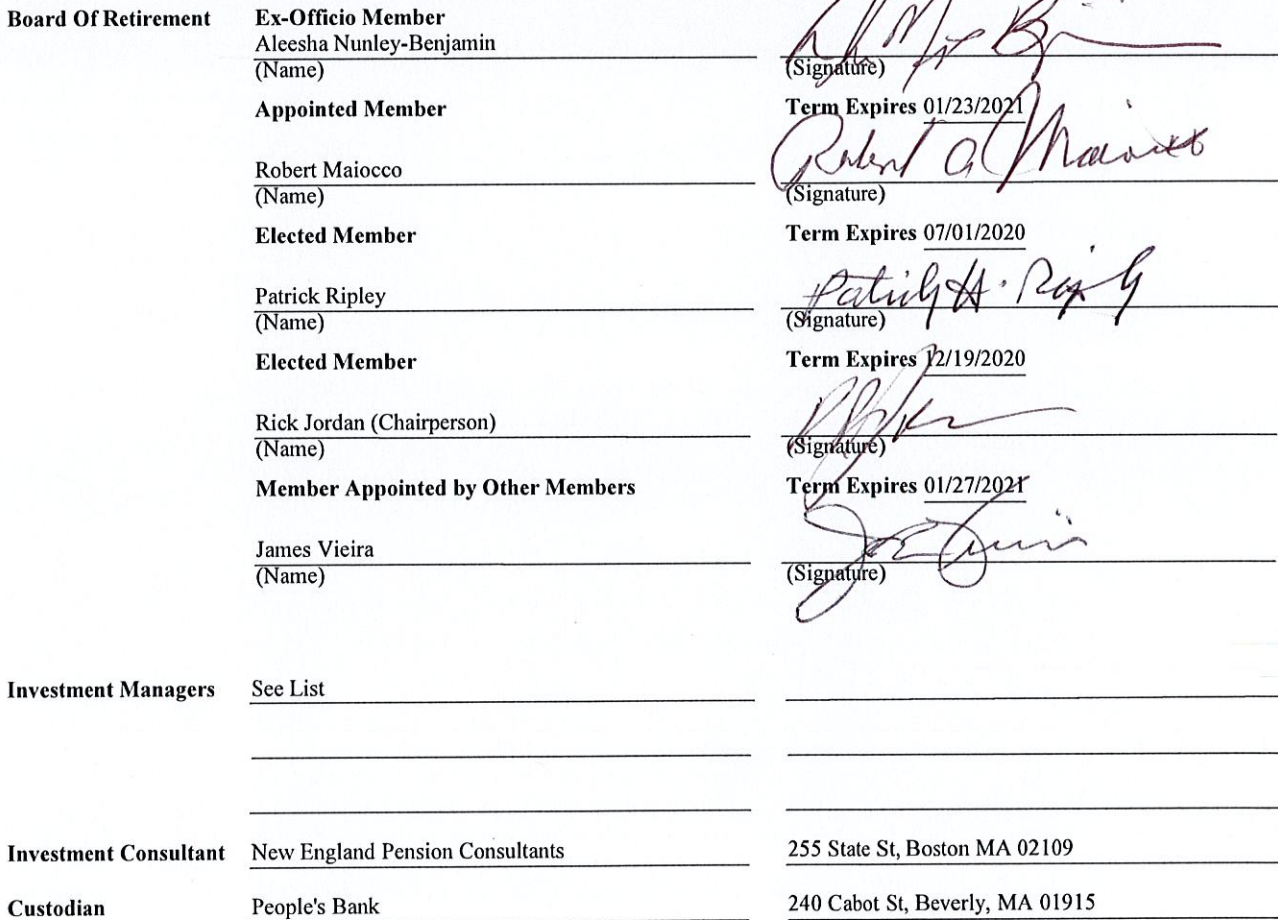 Board Of Retirement Ex-Officio Member
Aleesha Nunley-Benjamin
(Name) (Signature)
Appointed Member Term Expires 01/23/2021
Robert Maiocco Robert A Maiocco
(Name) (Signature)
Elected Member Term Expires 07/01/2020
Patrick Ripley Patrick H. Ripley
(Name) (Signature)
Elected Member Term Expires 12/19/2020
Rick Jordan (Chairperson)
(Name) (Signature)
Member Appointed by Other Members Term Expires 01/27/2021
James Vieira
(Name) (Signature)
Investment Managers See List
Investment Consultant New England Pension Consultants 255 State St, Boston MA 02109
Custodian People's Bank 240 Cabot St, Beverly, MA 01915